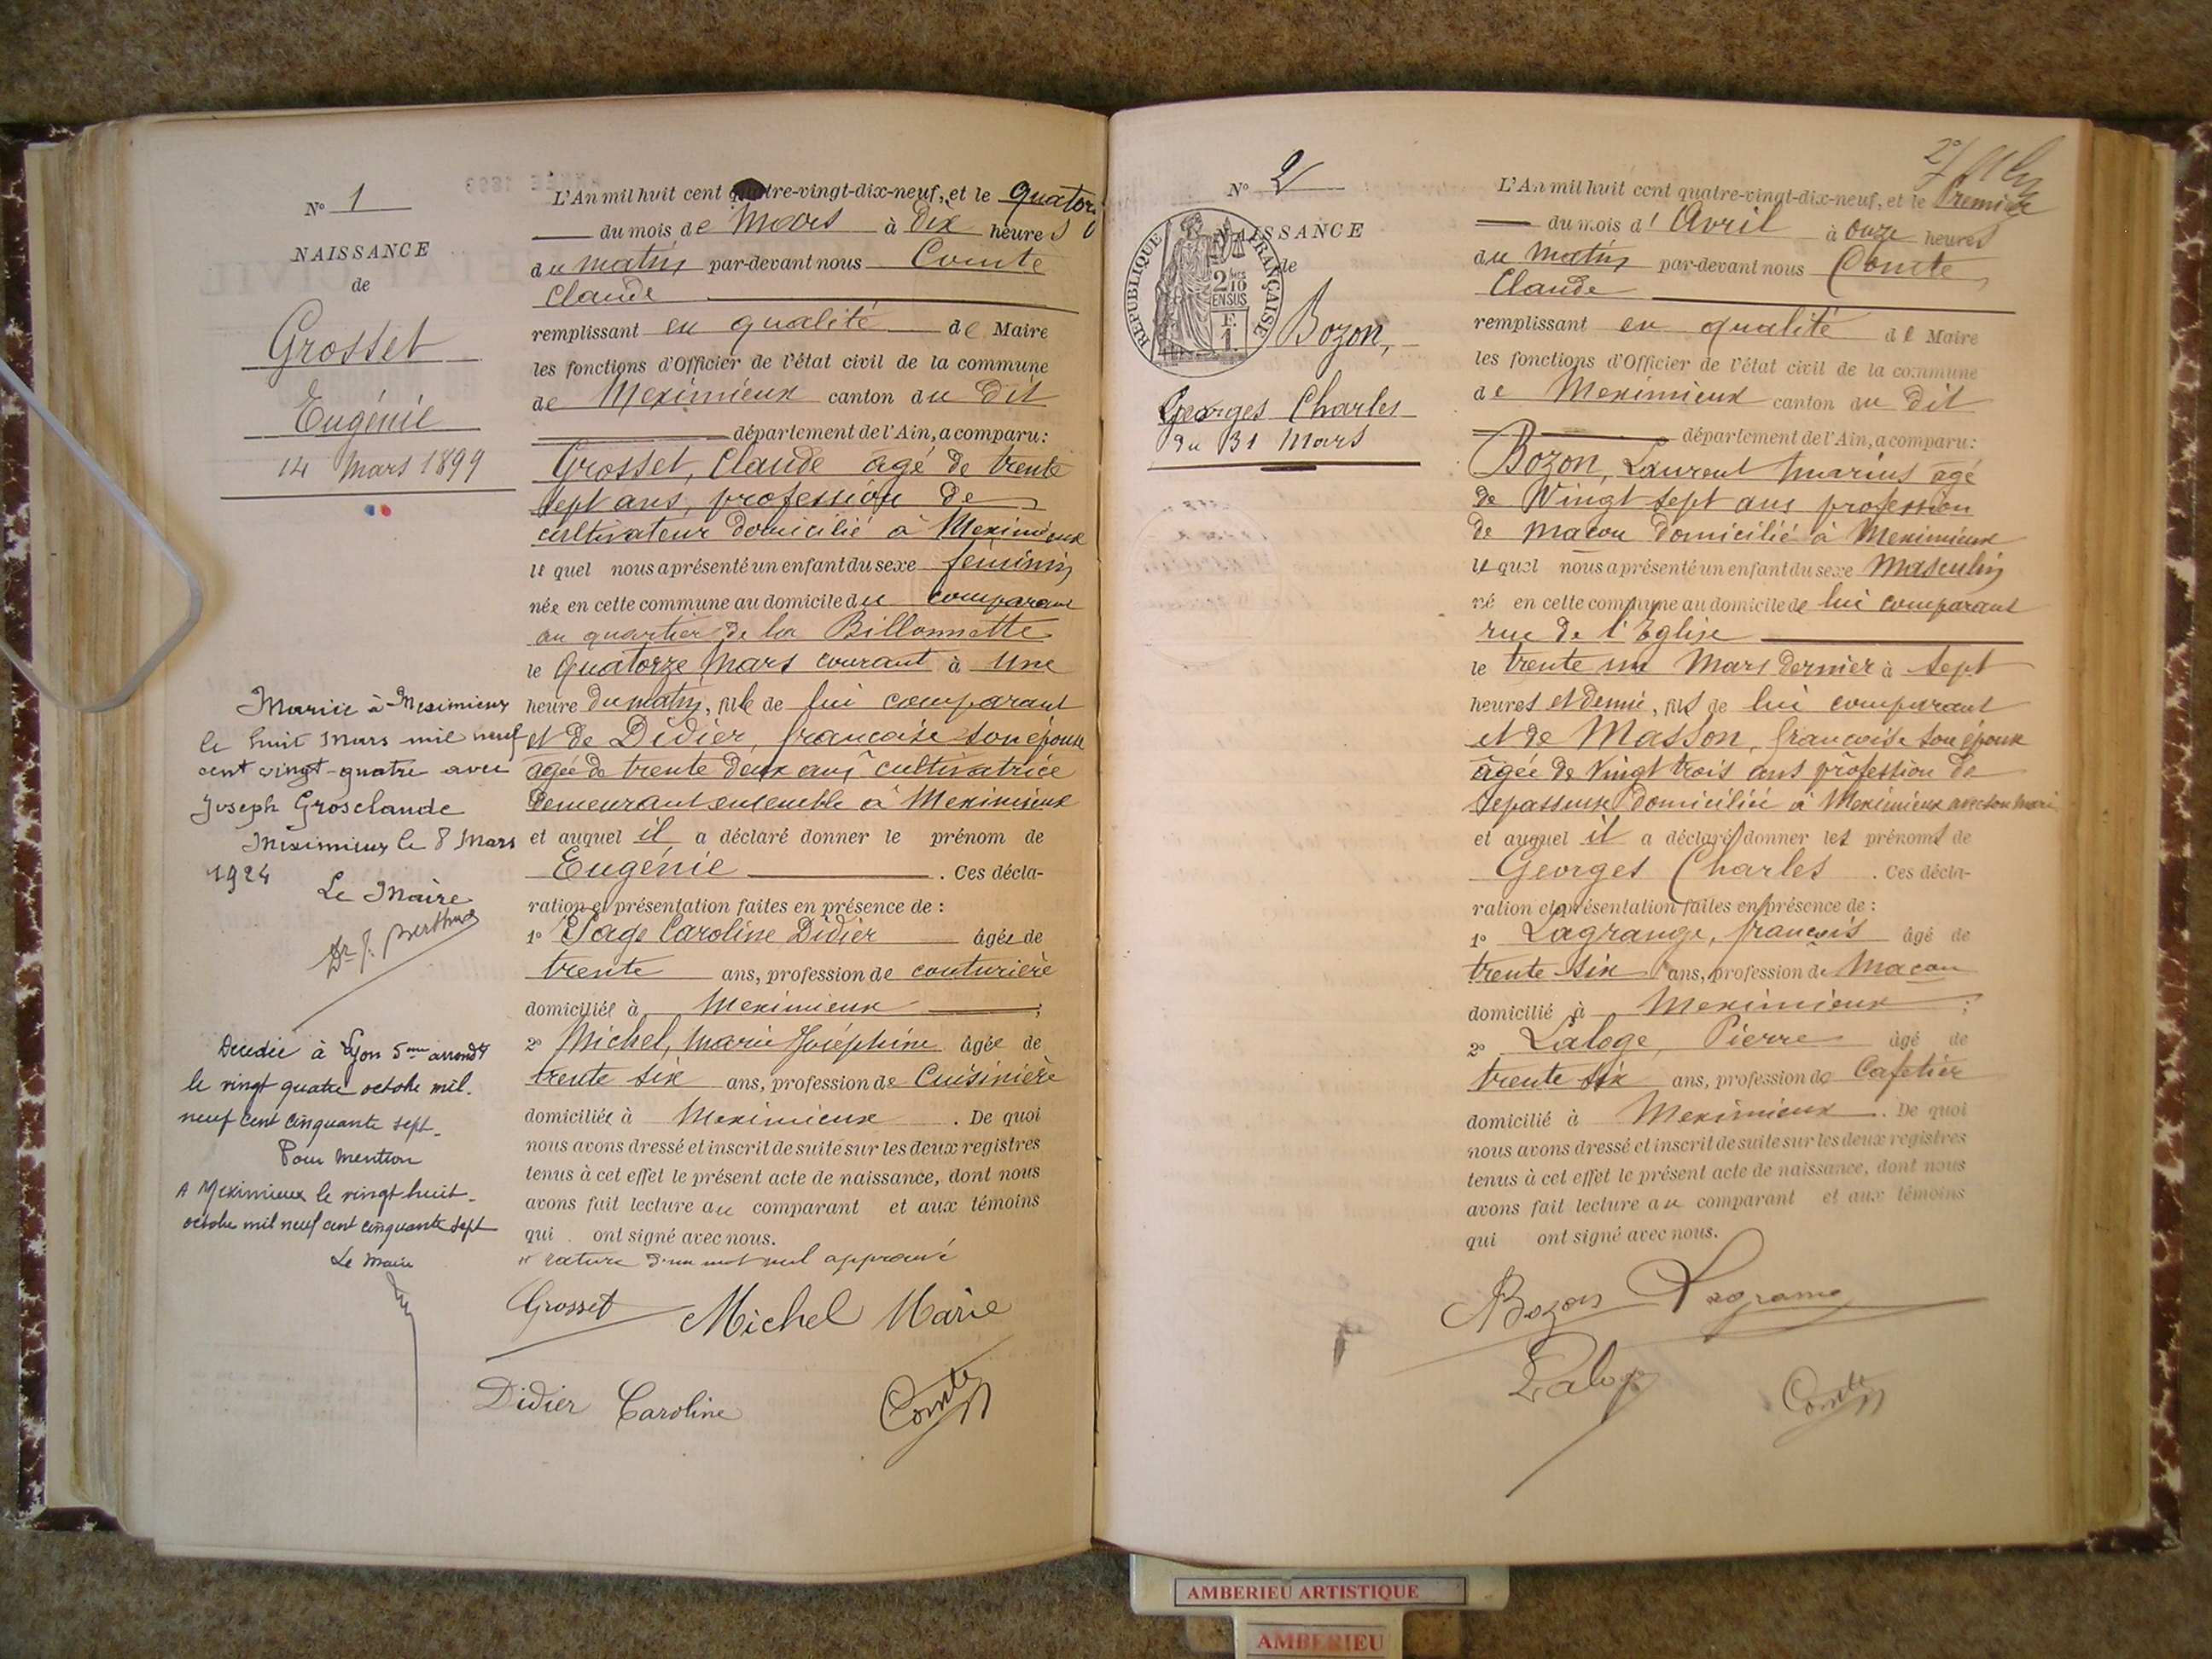 N° 1
NAISSANCE
de
Grosset
Eugénie
14 Mars 1899
Mariée à Meximieux
le huit Mars mil neuf
cent vingt-quatre avec
Joseph Grosclaude
Meximieux le 8 Mars
1924
Le Maire
Dr J. Berthod
Décédée à Lyon 5me arrondt
le vingt quatre octobre mil
neuf cent cinquante sept_
Pour mention
A Meximieux le vingt huit_
octobre mil neuf cent cinquante sept
Le Maire
L'An mil huit cent quatre-vingt-dix-neuf, et le quatorz
du mois de Mars à dix heures
du matin par-devant nous Comte
Claude
remplissant en qualité de Maire
les fonctions d'Officier de l'état civil de la commune
de Meximieux canton du dit
département de l'Ain, a comparu:
Grosset, Claude âgé de trente
sept ans, profession de
cultivateur domicilié à Meximieux
le quel nous a présenté un enfant du sexe féminin
née en cette commune au domicile du comparant
au quartier de la Billonnette
le quatorze Mars courant à une
heure du matin, fille de lui comparant
et de Didier, françoise son épouse
âgée de trente deux ans cultivatrice
demeurant ensemble à Meximieux
et auquel il a déclaré donner le prénom de
Eugénie . Ces décla-
ration et présentation faites en présence de :
1° Caroline Didier âgée de
trente ans, profession de couturière
domiciliée à Meximieux ;
2° Michel, Marie Joséphine âgée de
trente six ans, profession de Cuisinière
domiciliée à Meximieux . De quoi
nous avons dressé et inscrit de suite sur les deux registres
tenus à cet effet le présent acte de naissance, dont nous
avons fait lecture au comparant et aux témoins
qui ont signé avec nous.
rature d'un mot nul approuvé
Grosset Michel Marie
Didier Caroline Comte
N° 2
NAISSANCE
de
RÉPUBLIQUE FRANÇAISE
2/10
EN SUS
F.
1.
Bozon,
Georges Charles
du 31 Mars
L'An mil huit cent quatre-vingt-dix-neuf, et le Premier
du mois d'Avril à onze heures
du matin par-devant nous Comte
Claude
remplissant en qualité de Maire
les fonctions d'Officier de l'état civil de la commune
de Meximieux canton du dit
département de l'Ain, a comparu:
Bozon, Laurent Marius âgé
de Vingt sept ans profession
de maçon domicilié à Meximieux
le quel nous a présenté un enfant du sexe Masculin
né en cette commune au domicile de lui comparant
rue de l'Eglise
le trente un Mars dernier à sept
heures et demie, fils de lui comparant
et de Masson, françoise son épouse
âgée de vingt trois ans profession de
repasseuse domiciliée à Meximieux avec son mari
et auquel il a déclaré donner les prénoms de
Georges Charles . Ces décla-
ration et présentation faites en présence de :
1° Lagrange, françois âgé de
trente six ans, profession de Maçon
domicilié à Meximieux ;
2° Laloge, Pierre âgé de
trente six ans, profession de Cafetier
domicilié à Meximieux . De quoi
nous avons dressé et inscrit de suite sur les deux registres
tenus à cet effet le présent acte de naissance, dont nous
avons fait lecture au comparant et aux témoins
qui ont signé avec nous.
Bozon Lagrange
Laloge Comte
AMBERIEU ARTISTIQUE
AMBERIEU